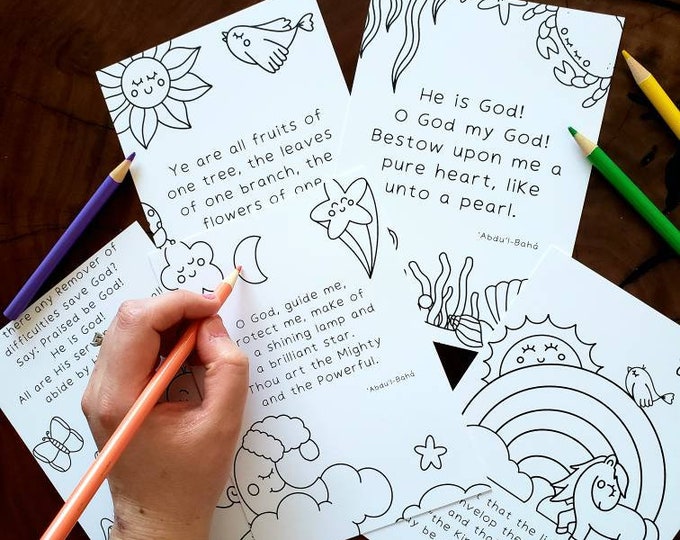 Ye are all fruits of
one tree, the leaves
of one branch, the
flowers of one
He is God!
O God my God!
Bestow upon me a
pure heart, like
unto a pearl.
'Abdu'l-Bahá
there any Remover of
difficulties save God?
Say: Praised be God!
He is God!
All are His ser
abide by
all
O God, guide me,
rotect me, make of
a shining lamp and
a brilliant star.
Thou art the Mighty
and the Powerful.
'Abdu'l-Bahá
t that the li
nvelop the
and th
the Kin
dy be